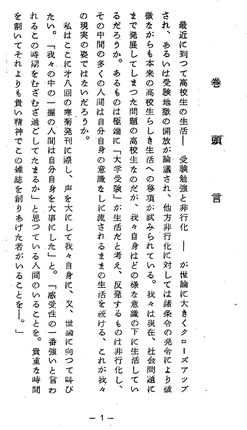 巻頭言
最近に到つて高校生の生活― 受験勉強と非行化 ―が世論に大きくクローズアップ
され、あるいは受験地獄の開放が論議され、他方非行化に対しては諸条令の発令により破
微ながらも本来の高校生らしき生活への移項が試みられている。我々は現在、社会問題に
まで発展してしまつた問題の高校生なのだが、我々自身はどの様な意識の下に生活してい
るだろうか。あるものは極端に「大学受験」が生活だと考え、反発するものは非行化し、
その中間の多くの人間は自分自身の意識なしに流されるままの生活を続ける、これが我々
の現実の姿ではないだろうか。
私はここに才八回の摩菊発刊に際し、声を大にして我々自身に、又、世論に向つて叫び
たい。「我々の中の一握の人間は自分自身を大事にした」と。「感受性の一番強いと言わ
れるこの時期をむざむざ過ごしてたまるか」と思つている人間のいることを。貴重な時間
を割いてそれよりも貴い精神でこの雑誌を創りあげた者がいることを―。」
― 1 ―